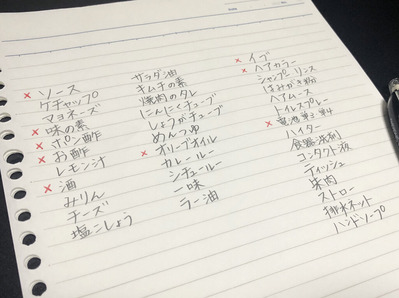 × ソース
ケチャップ
マヨネーズ
× 味の素
× ポン酢
× お酢
レモン汁
× 酒
みりん
チーズ
塩こしょう
サラダ油
キムチの素
焼肉のタレ
にんにくチューブ
しょうがチューブ
めんつゆ
× オリーブオイル
カレールー
シチュールー
一味
ラー油
× イブ
× ヘアカラー
シャンプーリンス
はみがき粉
ヘアムース
トイレスプレー
× 電池 単3・単4
ハイター
食器洗剤
コンタクト液
ティッシュ
ストロー
排水ネット
ハンドソープ